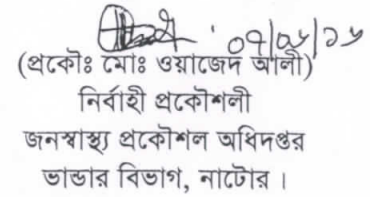 ০৭/০৮/১৬
(প্রকৌঃ মোঃ ওয়াজেদ আলী)
নির্বাহী প্রকৌশলী
জনস্বাস্থ্য প্রকৌশল অধিদপ্তর
ভান্ডার বিভাগ, নাটোর ।